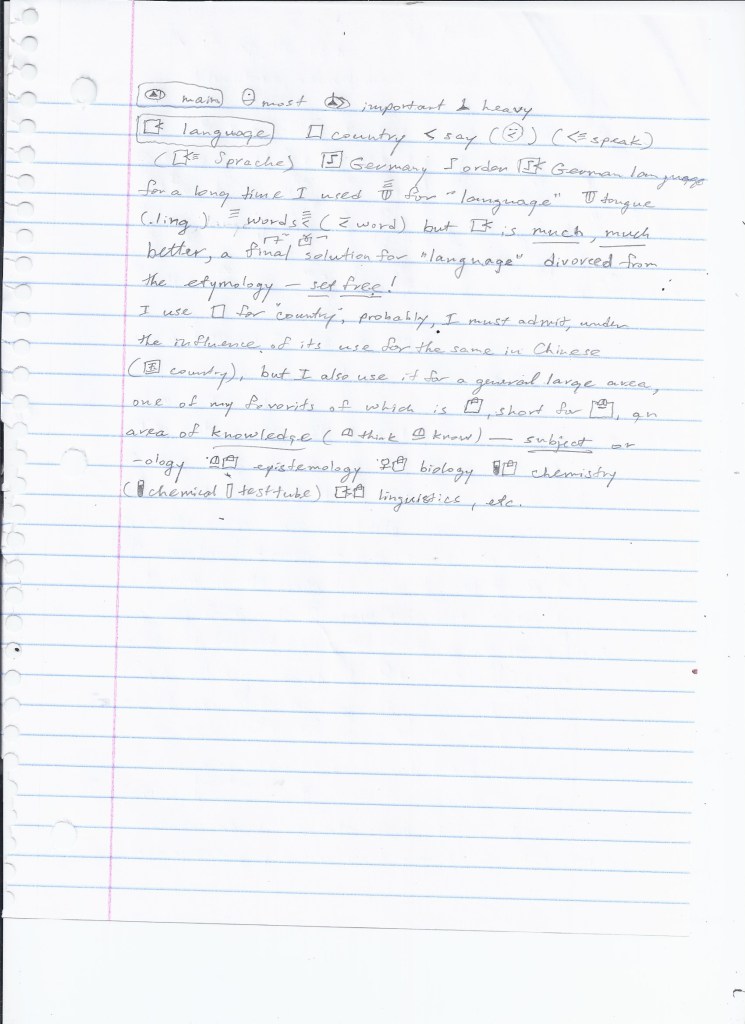 main most important heavy
language □ country < say ( ) (<= speak)
( Sprache) Germany order German language
for a long time I used for "language" tongue
(.ling ) words ( word) but is much, much
better, a final solution for "language" divorced from
the etymology – set free!
I use □ for "country", probably, I must admit, under
the influence of its use for the same in Chinese
( country), but I also use it for a general large area,
one of my favorits of which is , short for , an
area of knowledge ( think know) — subject or
-ology epistemology biology chemistry
( chemical test tube) linguistics, etc.